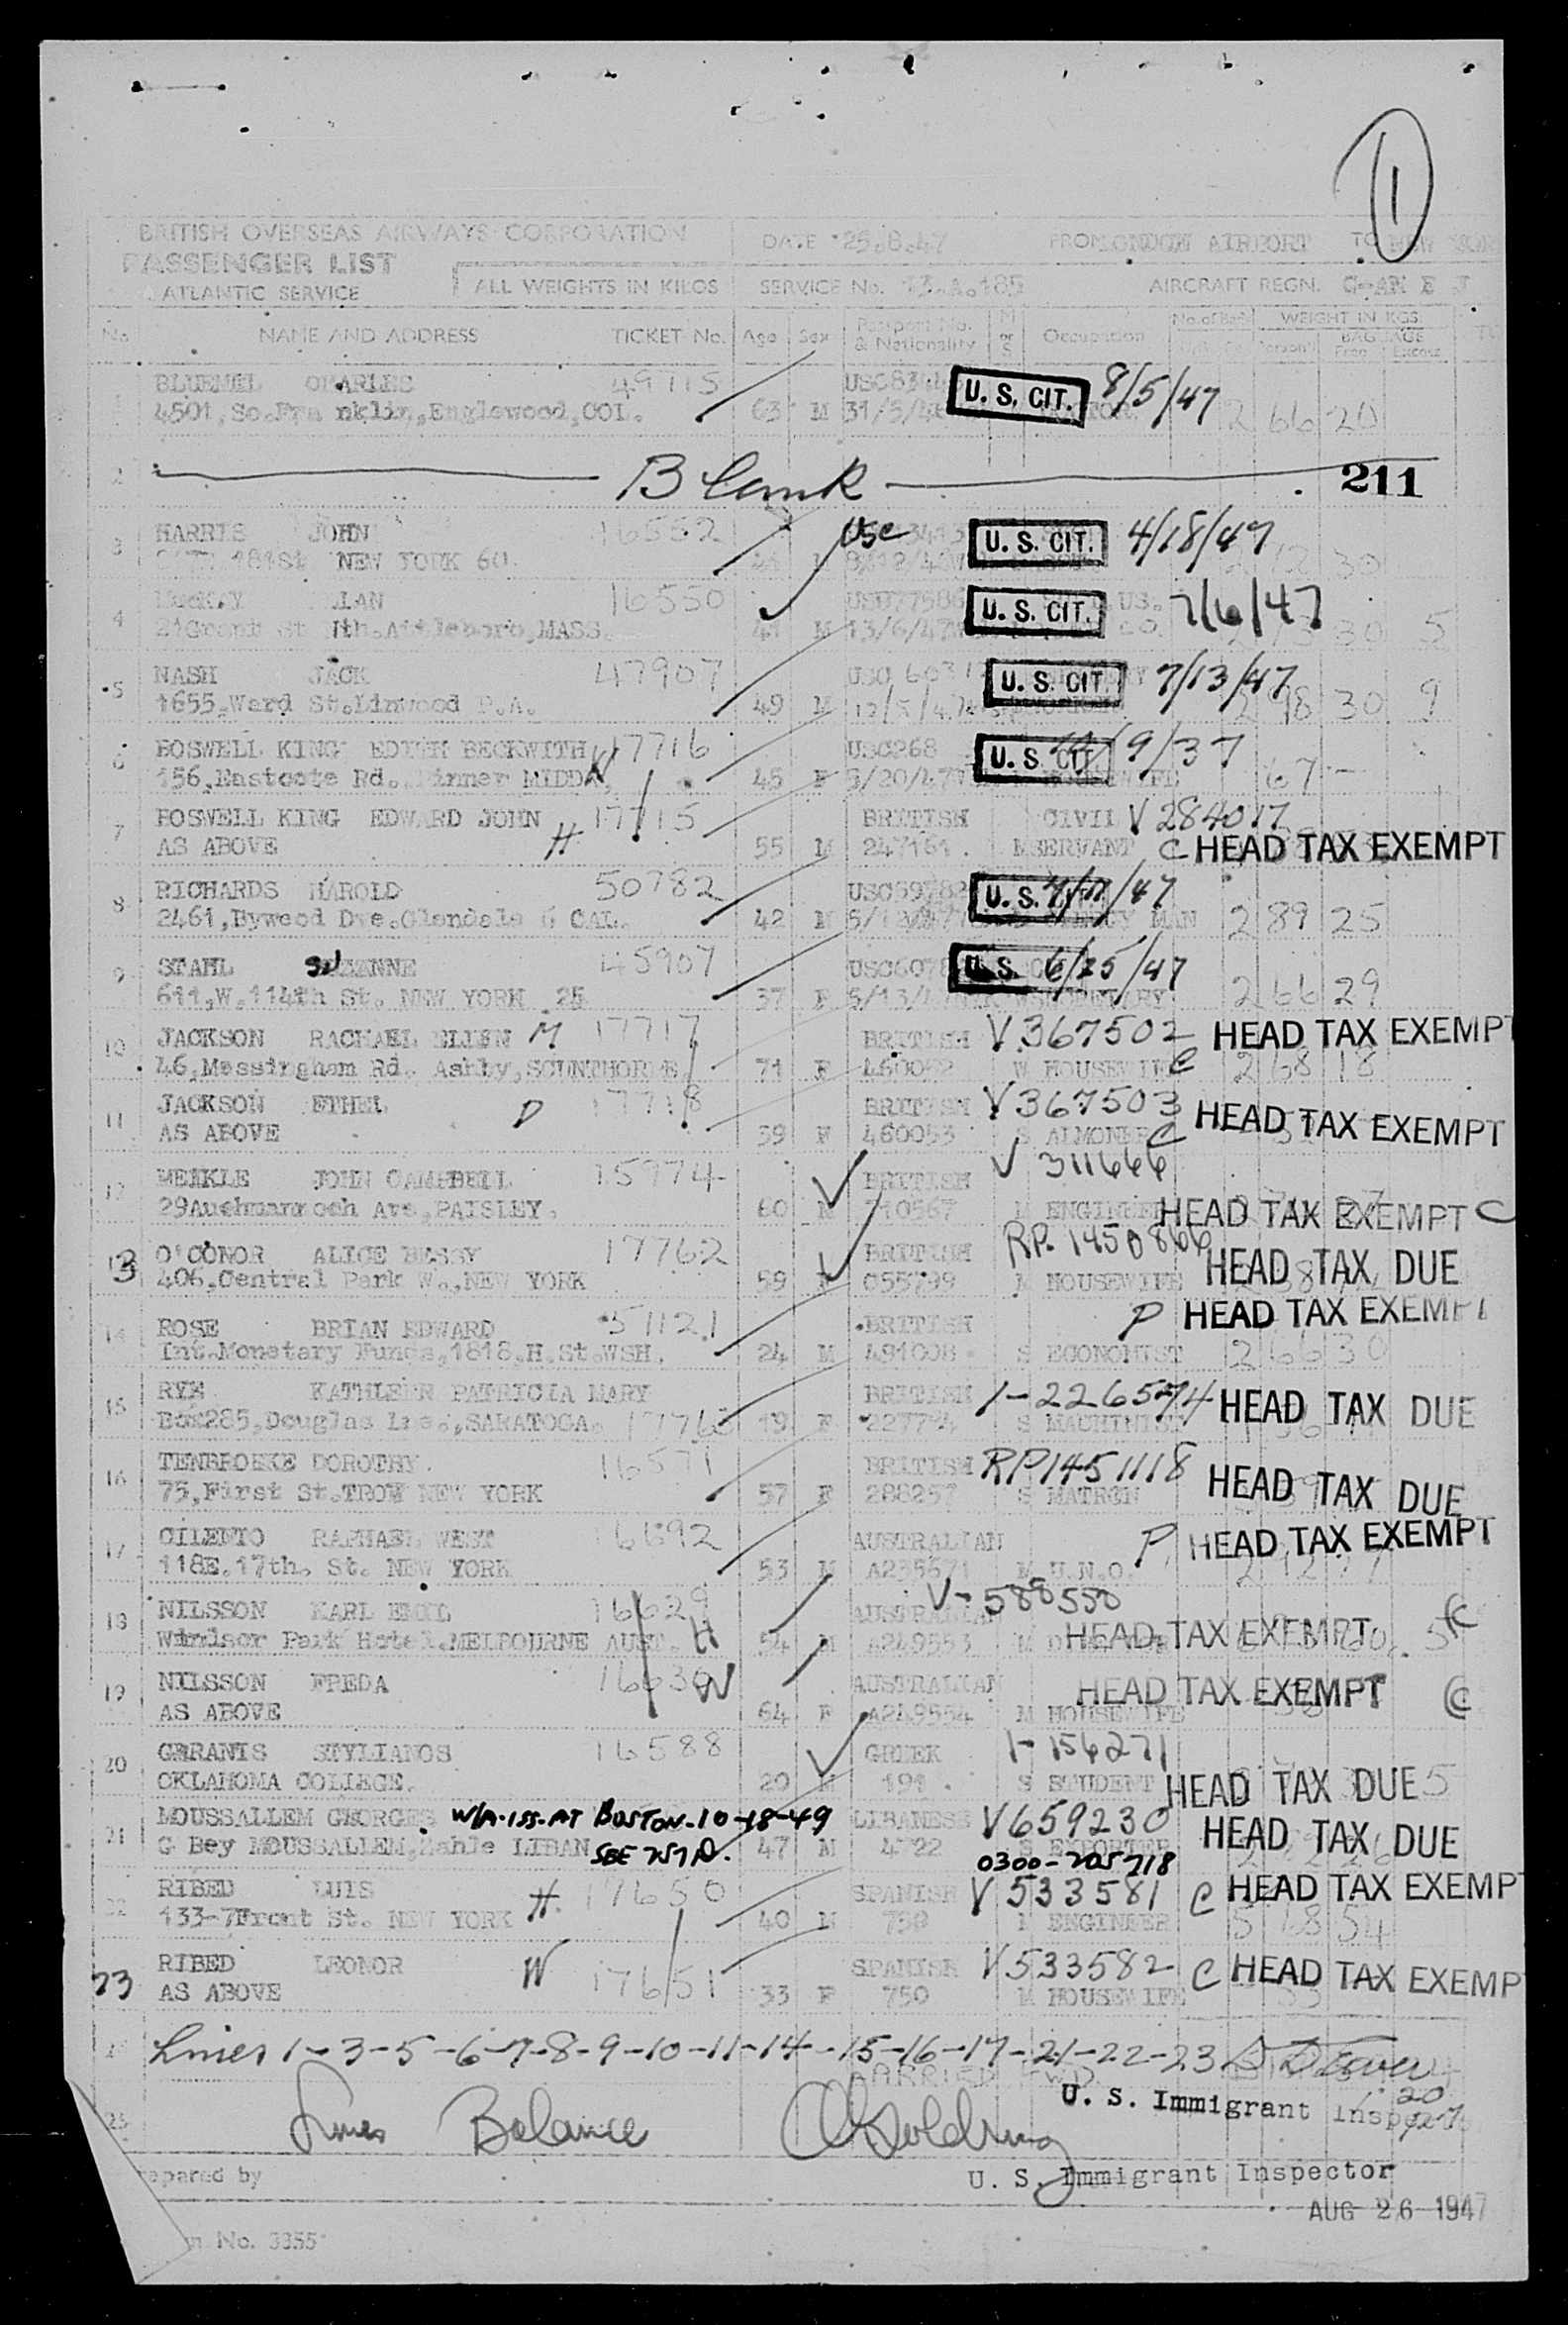 1
BRITISH OVERSEAS AIRWAYS CORPORATION DATE 25.8.47 FROM LONDON AIRPORT TO NEW YORK
PASSENGER LIST
ATLANTIC SERVICE ALL WEIGHTS IN KILOS SERVICE No. AIRCRAFT REGN.
No. NAME AND ADDRESS TICKET No. Age Sex Passport No. & Nationality M or S Occupation No. of WEIGHT IN KGS. BAGGAGE Free Excess
BLUEMEL CHARLES 49715 U. S. CIT. 8/5/47
4501, So. Franklin, Englewood, COL. 63 M 2 66 20
2 Blank 211
3 HARRIS JOHN 16552 USC U. S. CIT. 4/18/47
181St NEW YORK 60. 30
4 ALAN 16550 U. S. CIT. 7/6/47
21 Grant St Nth. Attleboro, MASS. M 13/6/47 30 5
5 NASH JACK 47907 U. S. CIT. 7/13/47
1655, Ward St. Linwood P.A. 49 M 2 98 30 9
6 BOSWELL KING EDITH BECKWITH W 17716 USC268 U. S. CIT 9/37
156, Eastcote Rd. Pinner MIDDX 45 F 5/20/47 HOUSEWIFE 67 -
7 BOSWELL KING EDWARD JOHN H 17715 BRITISH CIVIL V 284017
AS ABOVE 55 M 247161. M SERVANT C HEAD TAX EXEMPT
8 RICHARDS HAROLD 50782 U. S. /47
2461, Bywood Dve. Glendale 6 CAL. 42 M MAN 2 89 25
9 STAHL SUZANNE 45907 U. S. 6/25/47
611, W. 114th St. NEW YORK 25 37 F 5/13/47 SECRETARY 2 66 29
10 JACKSON RACHAEL ELLEN M 17717 BRITISH V 367502 HEAD TAX EXEMPT
46, Messingham Rd. Ashby, SCUNTHORPE 71 F 460052 W HOUSEWIFE C 2 68 18
11 JACKSON ETHEL D 17718 BRITISH V 367503 HEAD TAX EXEMPT
AS ABOVE 39 F 460053 S ALMONER C
12 MEIKLE JOHN CAMPBELL 15774 BRITISH V 311666
29 Auchmannoch Ave, PAISLEY. 60 M 710567 M ENGINEER HEAD TAX EXEMPT C
13 O'CONOR ALICE BESSY 17762 BRITISH RP. 1450866
406, Central Park W., NEW YORK 59 F 055799 M HOUSEWIFE HEAD TAX DUE
14 ROSE BRIAN EDWARD 51121 BRITISH P HEAD TAX EXEMPT
Int. Monetary Funds, 1818, H. St. WSH. 24 M 491008 S ECONOMIST 2 66 30
15 RYE KATHLEEN PATRICIA MARY BRITISH 1-226574 HEAD TAX DUE
Box 285, Douglas SARATOGA. 17763 19 F S MACHINIST
16 TENBROEKE DOROTHY. 16571 BRITISH RP1451118 HEAD TAX DUE
75, First St. TROY NEW YORK 57 F 288257 S MATRON
17 CILENTO RAPHAEL WEST 16692 AUSTRALIAN P HEAD TAX EXEMPT
118E. 17th. St. NEW YORK 53 M A235671 M U.N.O.
18 NILSSON KARL EMIL 16629 AUSTRALIAN V-588550
Windsor Park Hotel. MELBOURNE AUST. H 54 M A249553 M HEAD TAX EXEMPT 5 C
19 NILSSON FREDA 16630 W AUSTRALIAN HEAD TAX EXEMPT C
AS ABOVE 64 F A249554 M HOUSEWIFE
20 GERANIS STYLIANOS 16588 GREEK 1-156271
OKLAHOMA COLLEGE. 20 M 191. S STUDENT HEAD TAX DUE 5
21 MOUSSALLEM GEORGES W/A-ISS-AT BOSTON-10-18-49 LIBANESE V659230 HEAD TAX DUE
G Bey MOUSSALLEM, Zahle LIBAN SEE 757 D. 47 M 4722 S EXPORTER
0300-705718
22 RIBED LUIS H. 17650 SPANISH V 533581 C HEAD TAX EXEMPT
133-7 Front St. NEW YORK 40 M 739 M ENGINEER 54
23 RIBED LEONOR W 17651 SPANISH V533582 C HEAD TAX EXEMPT
AS ABOVE 33 F 750 M HOUSEWIFE
Lines 1-3-5-6-7-8-9-10-11-14-15-16-17-21-22-23
CARRIED FWD.
U. S. Immigrant Inspector
25 Lines Balance
Prepared by U. S. Immigrant Inspector
AUG 26 1947
No. 3355